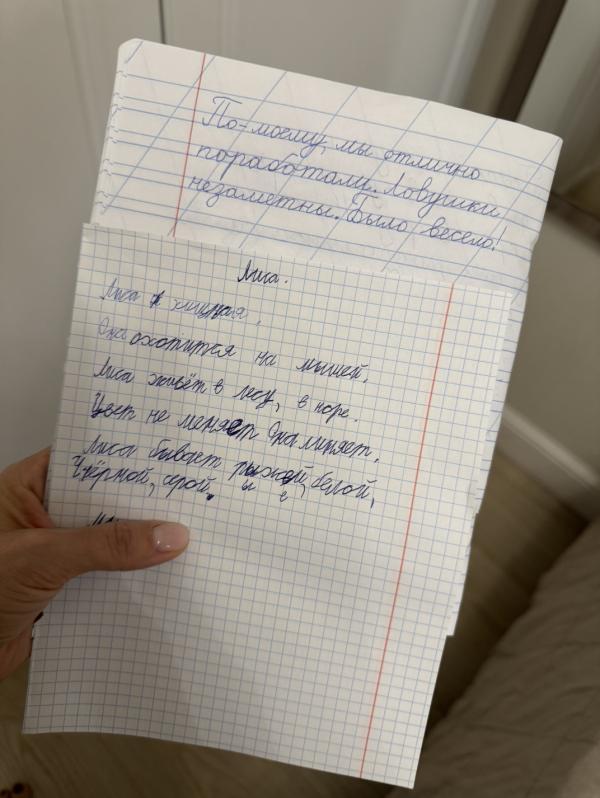 По-моему, мы отлично
поработали. Ловушки
незаметны. Было весело!
Лиса.
Лиса хищная.
Она охотится на мышей.
Лиса живёт в лесу, в норе.
Цвет не меняет Она линяет.
Лиса бывает рыжей, белой,
Чёрной, серой.
ы е